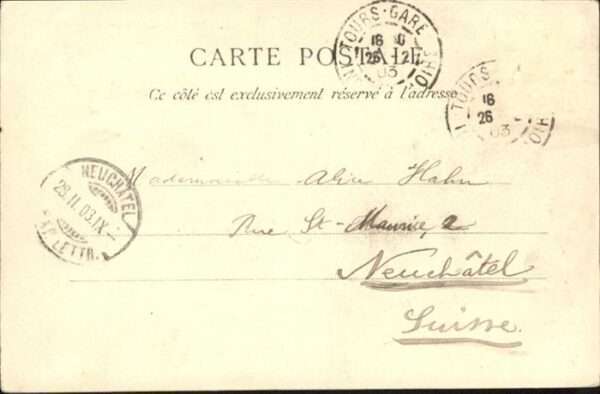 TOURS-GARE
16
26 2
03
CARTE POSTALE
Ce côté est exclusivement réservé à l'adresse
TOURS
16
26
03
NEUCHATEL
28.II.03.IX
LETTR.
Mademoiselle Alice Hahn
Rue St-Maurice, 2
Neuchâtel
Suisse.